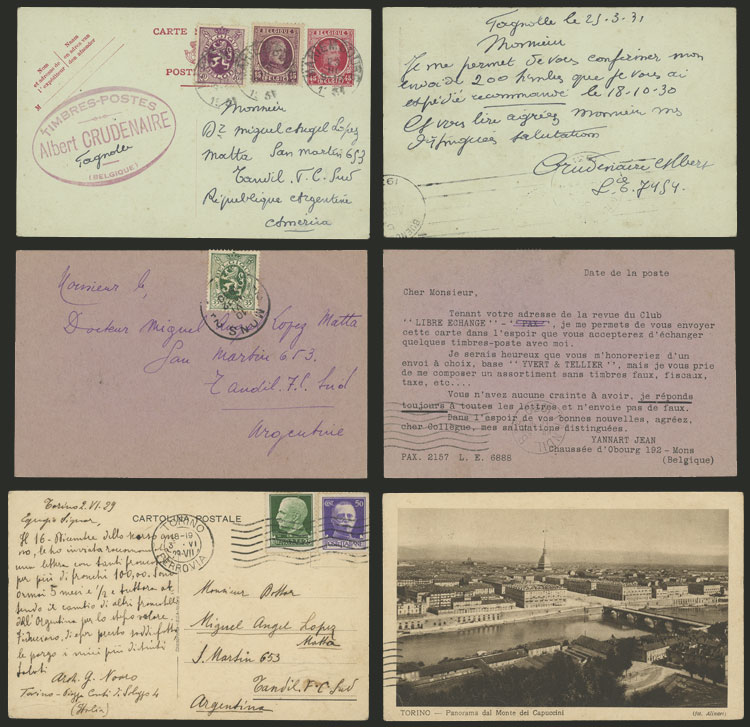 CARTE
POSTALE
Nom et adresse de l'expéditeur
Naam en adres van den afzender
M
BELGIQUE
TIMBRES-POSTES
Albert CRUDENAIRE
Tagnolle
(BELGIQUE)
Monsieur
Dr Miguel Angel Lopez
Matta San Martin 653
Tandil. F.C. Sud
République Argentine
America
Tagnolle le 25-3.31
Monsieur
Je me permet de vous confirmer mon
envoi de 200 timbres que je vous ai
expédié recommandé le 18-10-30
distinguées salutation
Crudenaire Albert
L. E. 7454.
Monsieur le,
Docteur Miguel Lopez Matta
San Martin 653.
Tandil. F.C. Sud
Argentine
MONS
Date de la poste
Cher Monsieur,
Tenant votre adresse de la revue du Club
''LIBRE ECHANGE''-''PAX'', je me permets de vous envoyer
cette carte dans l'espoir que vous accepterez d'échanger
quelques timbres-poste avec moi.
Je serais heureux que vous m'honoreriez d'un
envoi à choix, base ''YVERT & TELLIER'', mais je vous prie
de me composer un assortiment sans timbres faux, fiscaux,
taxe, etc....
Vous n'avez aucune crainte à avoir, je réponds
toujours à toutes les lettres et n'envoie pas de faux.
Dans l'espoir de vos bonnes nouvelles, agréez,
cher Collègue, mes salutations distinguées.
YANNART JEAN
Chaussée d'Obourg 192 - Mons
PAX. 2157 L. E. 6888 (Belgique)
Torino 2.VI.29
Egregio Signor,
CARTOLINA POSTALE
TORINO
18-19
FERROVIA
50
Il 16 - Dicembre dello scorso an-
no, le ho inviato
una lettera con tanti francobolli
per più di franchi 100,00. Sono
ormai 5 mesi e 1/2 e tuttora at-
tendo il cambio di altri francobolli
dell'Argentina per lo stipo valore.
Fiducioso di
saluti
Arch. G. Novo
Torino - Piazza Conti di
(Italia)
Monsieur
Miguel Angel Lopez
Matta
S. Martin 653
Tandil - F-C Sud
Argentina
TORINO — Panorama dal Monte dei Capuccini
(fot. Alinari)